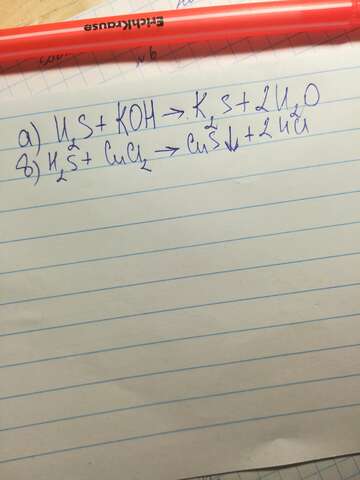 ErichKrause
№9
а) H₂S + KOH → K₂S + 2H₂O
б) H₂S + CuCl₂ → CuS↓ + 2HCl